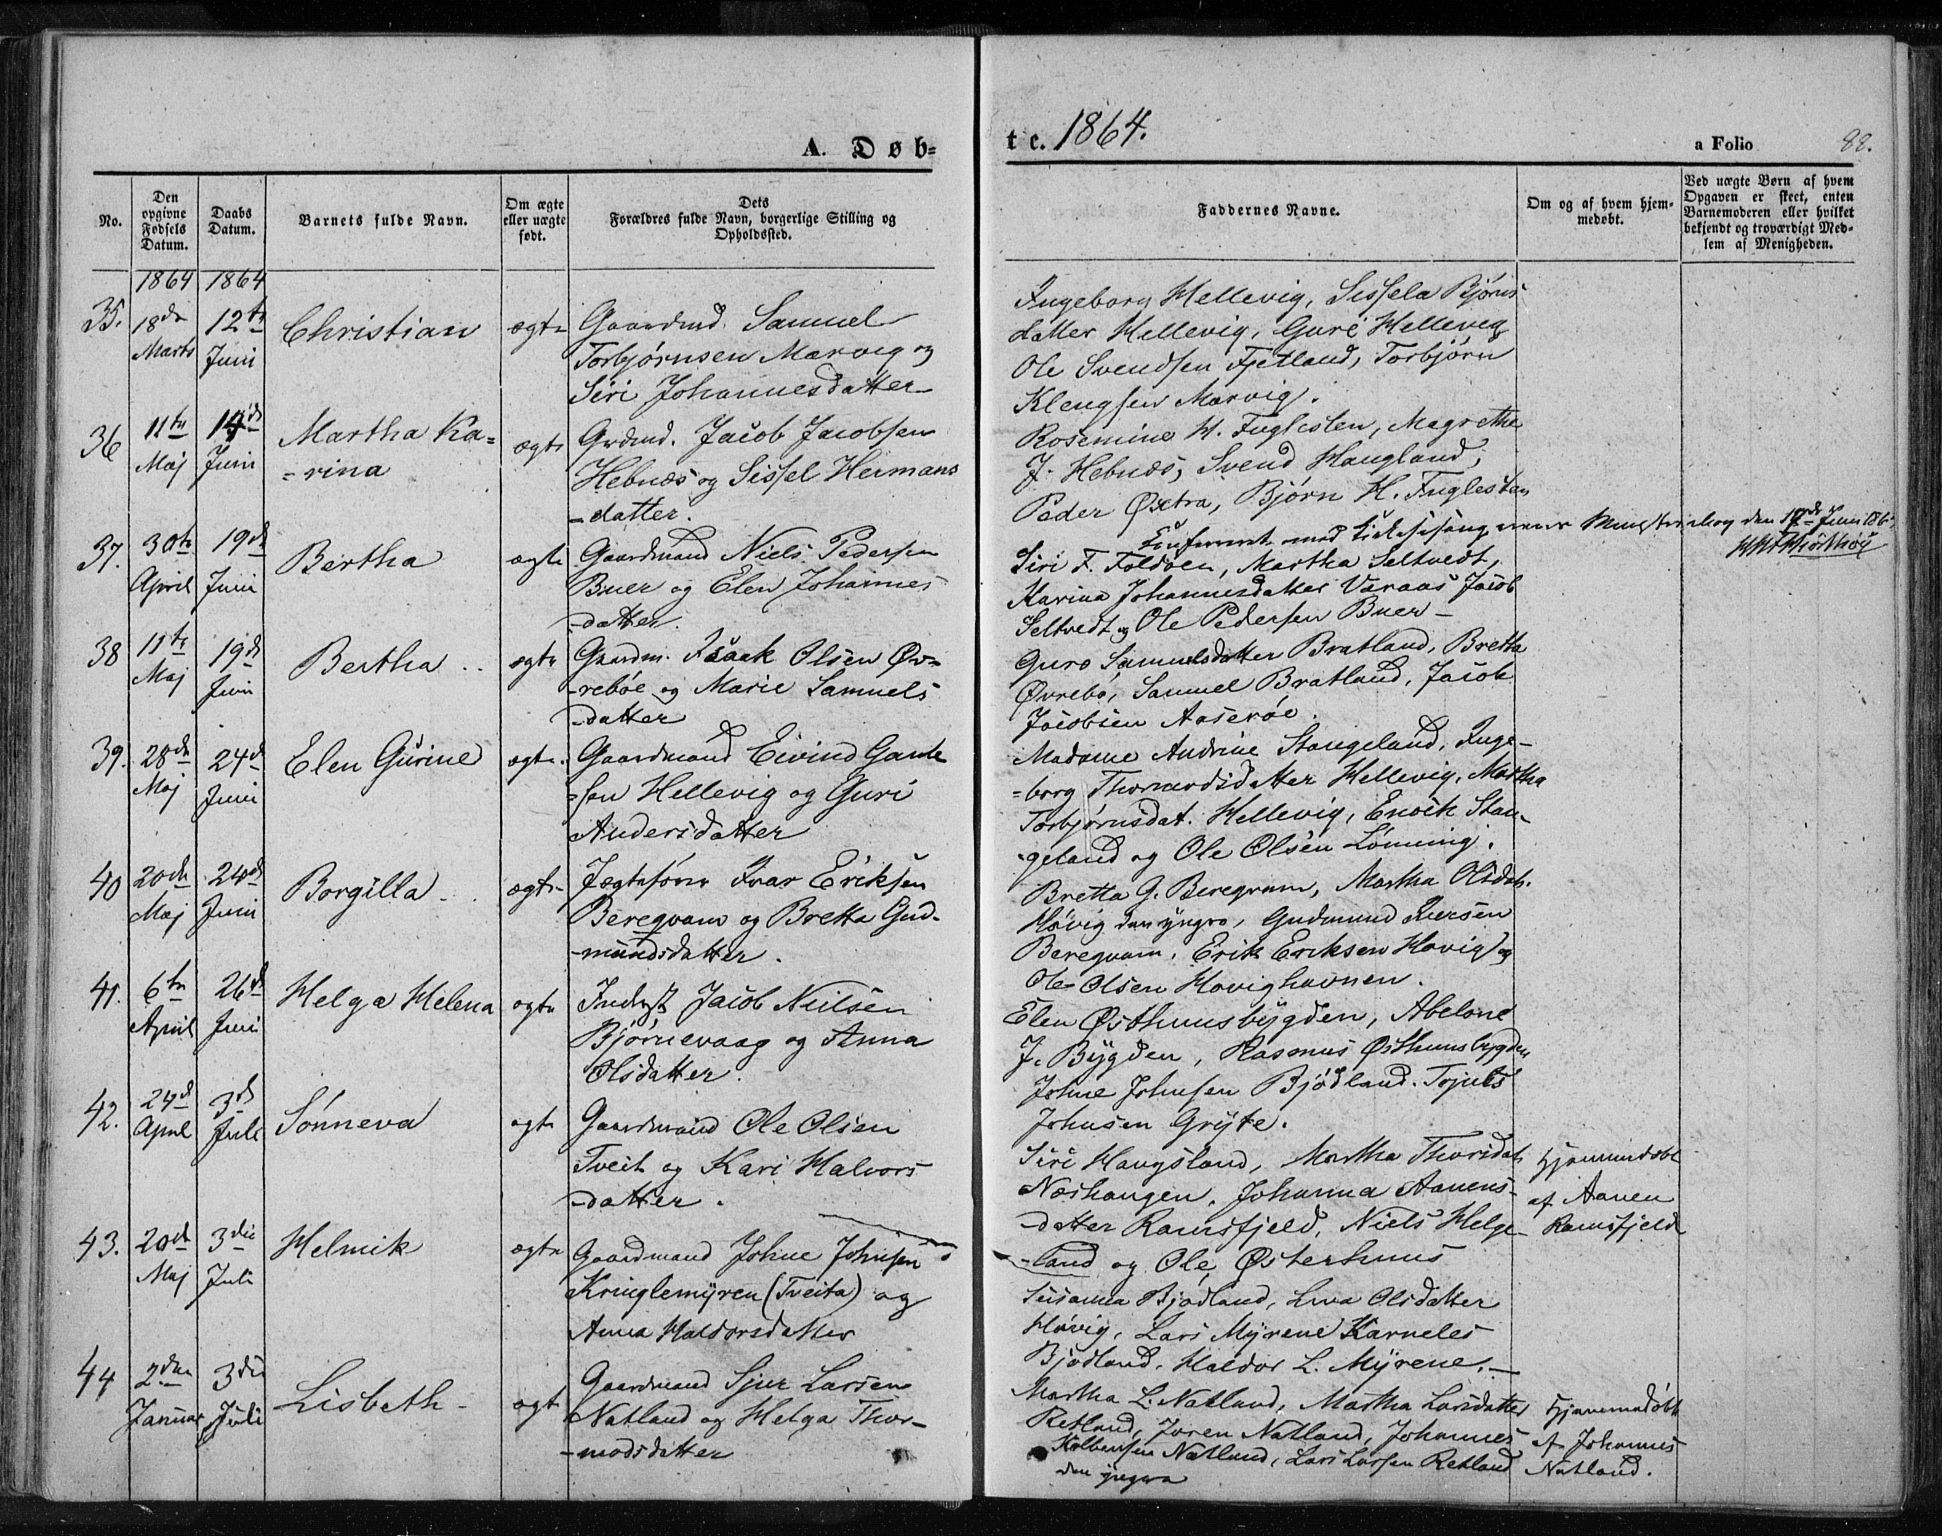 A. Døb=
te. 1864.
a Folio 88.
No.
Den opgivne Fødsels Datum.
Daabs Datum.
Barnets fulde Navn.
Om ægte eller uægte født.
Dets Forældres fulde Navn, borgerlige Stilling og Opholdssted.
Faddernes Navne.
Om og af hvem hjemmedøbt.
Ved uægte Børn af hvem Opgaven er skeet, enten Barnemoderen eller hvilket bekjendt og troværdigt Medlem af Menigheden.
1864 1864
35. 18de Marts 12te Juni Christian ægte
Gaardmd. Samuel
Torbjørnsen Marvig og
Siri Johannesdatter
Ingeborg Hellevig, Sissela Bjørns
datter Hellevig, Guri Hellevig
Ole Svendsen Fjetland, Torbjørn
Klengsen Marvig.
36 11te Maj 14de Juni Martha Ka=
=rina ægte
Grdmd. Jacob Jacobsen
Hebnæs og Sissel Hermans
-datter.
Rosemine H. Fuglesten, Magrethe
J. Hebnæs, Svend Haugland,
Peder Østra, Bjørn H. Fuglesten
Konfereret med den 17de Juni
37. 30te April 19de Juni Bertha ægte
Gaardmand Niels Pedersen
Buer og Elen Johannes
-datter.
Siri F. Foldøen, Martha Seltvedt,
Karina Johannesdatter Varaas Jacob
Seltvedt og Ole Pedersen Buer
38 11te Maj 19de Juni Bertha ægte
Gaardm. Isaak Olsen Øv-
-rebøe og Marie Samuels
-datter
Guro Samuelsdatter Bratland, Bretha
Øvrebø, Samuel Bratland, Jacob
Jacobsen Aaserøe.
39. 28de Maj 24de Juni Elen Gurine ægte
Gaardmand Eivind Gaute
=sen Hellevig og Guri
Andersdatter
Madame Andrine Stangeland, Inge-
=borg Thormodsdatter Hellevig, Martha
Torbjørnsdat. Hellevig, Enoch Stan-
-geland og Ole Olsen Lønning.
40 20de Maj 24de Juni Borgilla ægte
Jægtefører Ivar Eriksen
Beregvam og Bretta Gud-
-mundsdatter.
Bretta G. Beregvam, Martha Olsdat.
Høvig den yngre, Gudmund Iversen
Beregvam, Erik Eriksen Hovig og
Ole Olsen Hovighavnen.
41. 6te April 26de Juni Helga Helena ægte
Inderst Jacob Nielsen
Bjørnevaag og Anna
Olsdatter.
Elen Østhuusbygden, Abelone
J. Bygden, Rasmus Østhuusbygden
Johne Johnsen Bjødland. Tojuls
Johnsen Gryte.
42. 24de April 3de Juli Sønneva ægte
Gaardmand Ole Olsen
Tveit og Kari Halvors
-datter.
Siri Haugsland, Martha Thorsdat.
Næshaugen, Johanna Aanens-
-datter Ramsfjeld, Niels Helge-
-land og Ole Østerhuus
Hjemmedøbt
af Aanen
Ramsfjeld
43. 20de Maj 3die Juli Helmik ægte
Gaardmand Johne Johnsen
Kringlemyren (Tveita) og
Anna Haldorsdatter
Susanna Bjødland, Liva Olsdatter
Høvig, Lars Myrene Karneles
Bjødland, Haldor L. Myrene.
44 2den Januar 3die Juli Lisbeth ægte
Gaardmand Sjur Larsen
Natland og Helga Thor-
-modsdatter
Martha L. Natland, Martha Larsdatter
Retland, Joren Natland, Johannes
Kolbensen Natland, Lars Larsen Retland
den yngre
Hjemmedøbt
af Johannes
Natland.